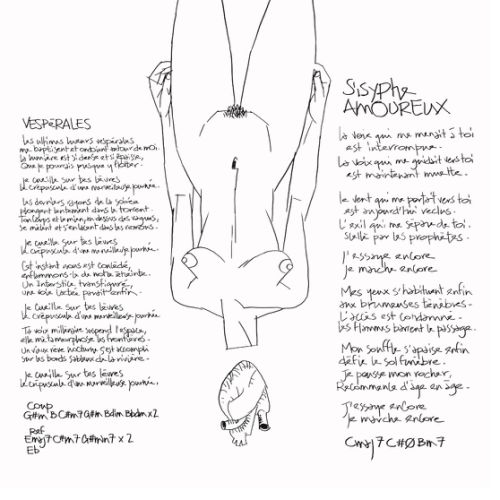 VESPÉRALES
Les ultimes lueurs vespérales
me baptisent et ondoient autour de moi.
La lumière est si dense et si épaisse,
Que je pourrais presque y flotter.
Je cueille sur tes lèvres
Le crépuscule d'une merveilleuse journée.
Les derniers rayons de la soirée
plongent lentement dans le torrent
Ton corps et le mien, en dessous des vagues,
se mêlant et s'enlacent dans les remous.
Je cueille sur tes lèvres
Le crépuscule d'une merveilleuse journée.
Cet instant nous est concédé,
enflammons-la de notre étreinte.
Un interstice transfiguré,
une voie lactée pourtant enfin.
Je cueille sur tes lèvres
Le crépuscule d'une merveilleuse journée
Ta voix millénaire suspend l'espace,
elle métamorphose les frontières.
Un vieux rêve nocturne s'est accompli
sur les bords sableux de la rivière.
Je cueille sur tes lèvres
Le crépuscule d'une merveilleuse journée.
Coup
G#m B C#m7 G#m Bdim Bbdm x2
Ref
Emaj7 C#m7 G#min7 x 2
Eb
SiSyphe
AmOUREUX
La voie qui me menait à toi
est interrompue.
La voix qui me guidait vers toi
est maintenant muette.
Le vent qui me portait vers toi
est aujourd'hui reclus.
L'exil qui me sépare de toi.
Scellé par les prophètes.
J'essaye encore
Je marche encore
Mes yeux s'habituent enfin
aux brumeuses ténèbres.
L'accès est condamné.
Les flammes barrent le passage.
Mon souffle s'apaise enfin
défie le sol funèbre.
Je pousse mon rocher,
Recommence d'âge en âge.
J'essaye encore
Je marche encore
Cmaj7 C#Ø Bm7